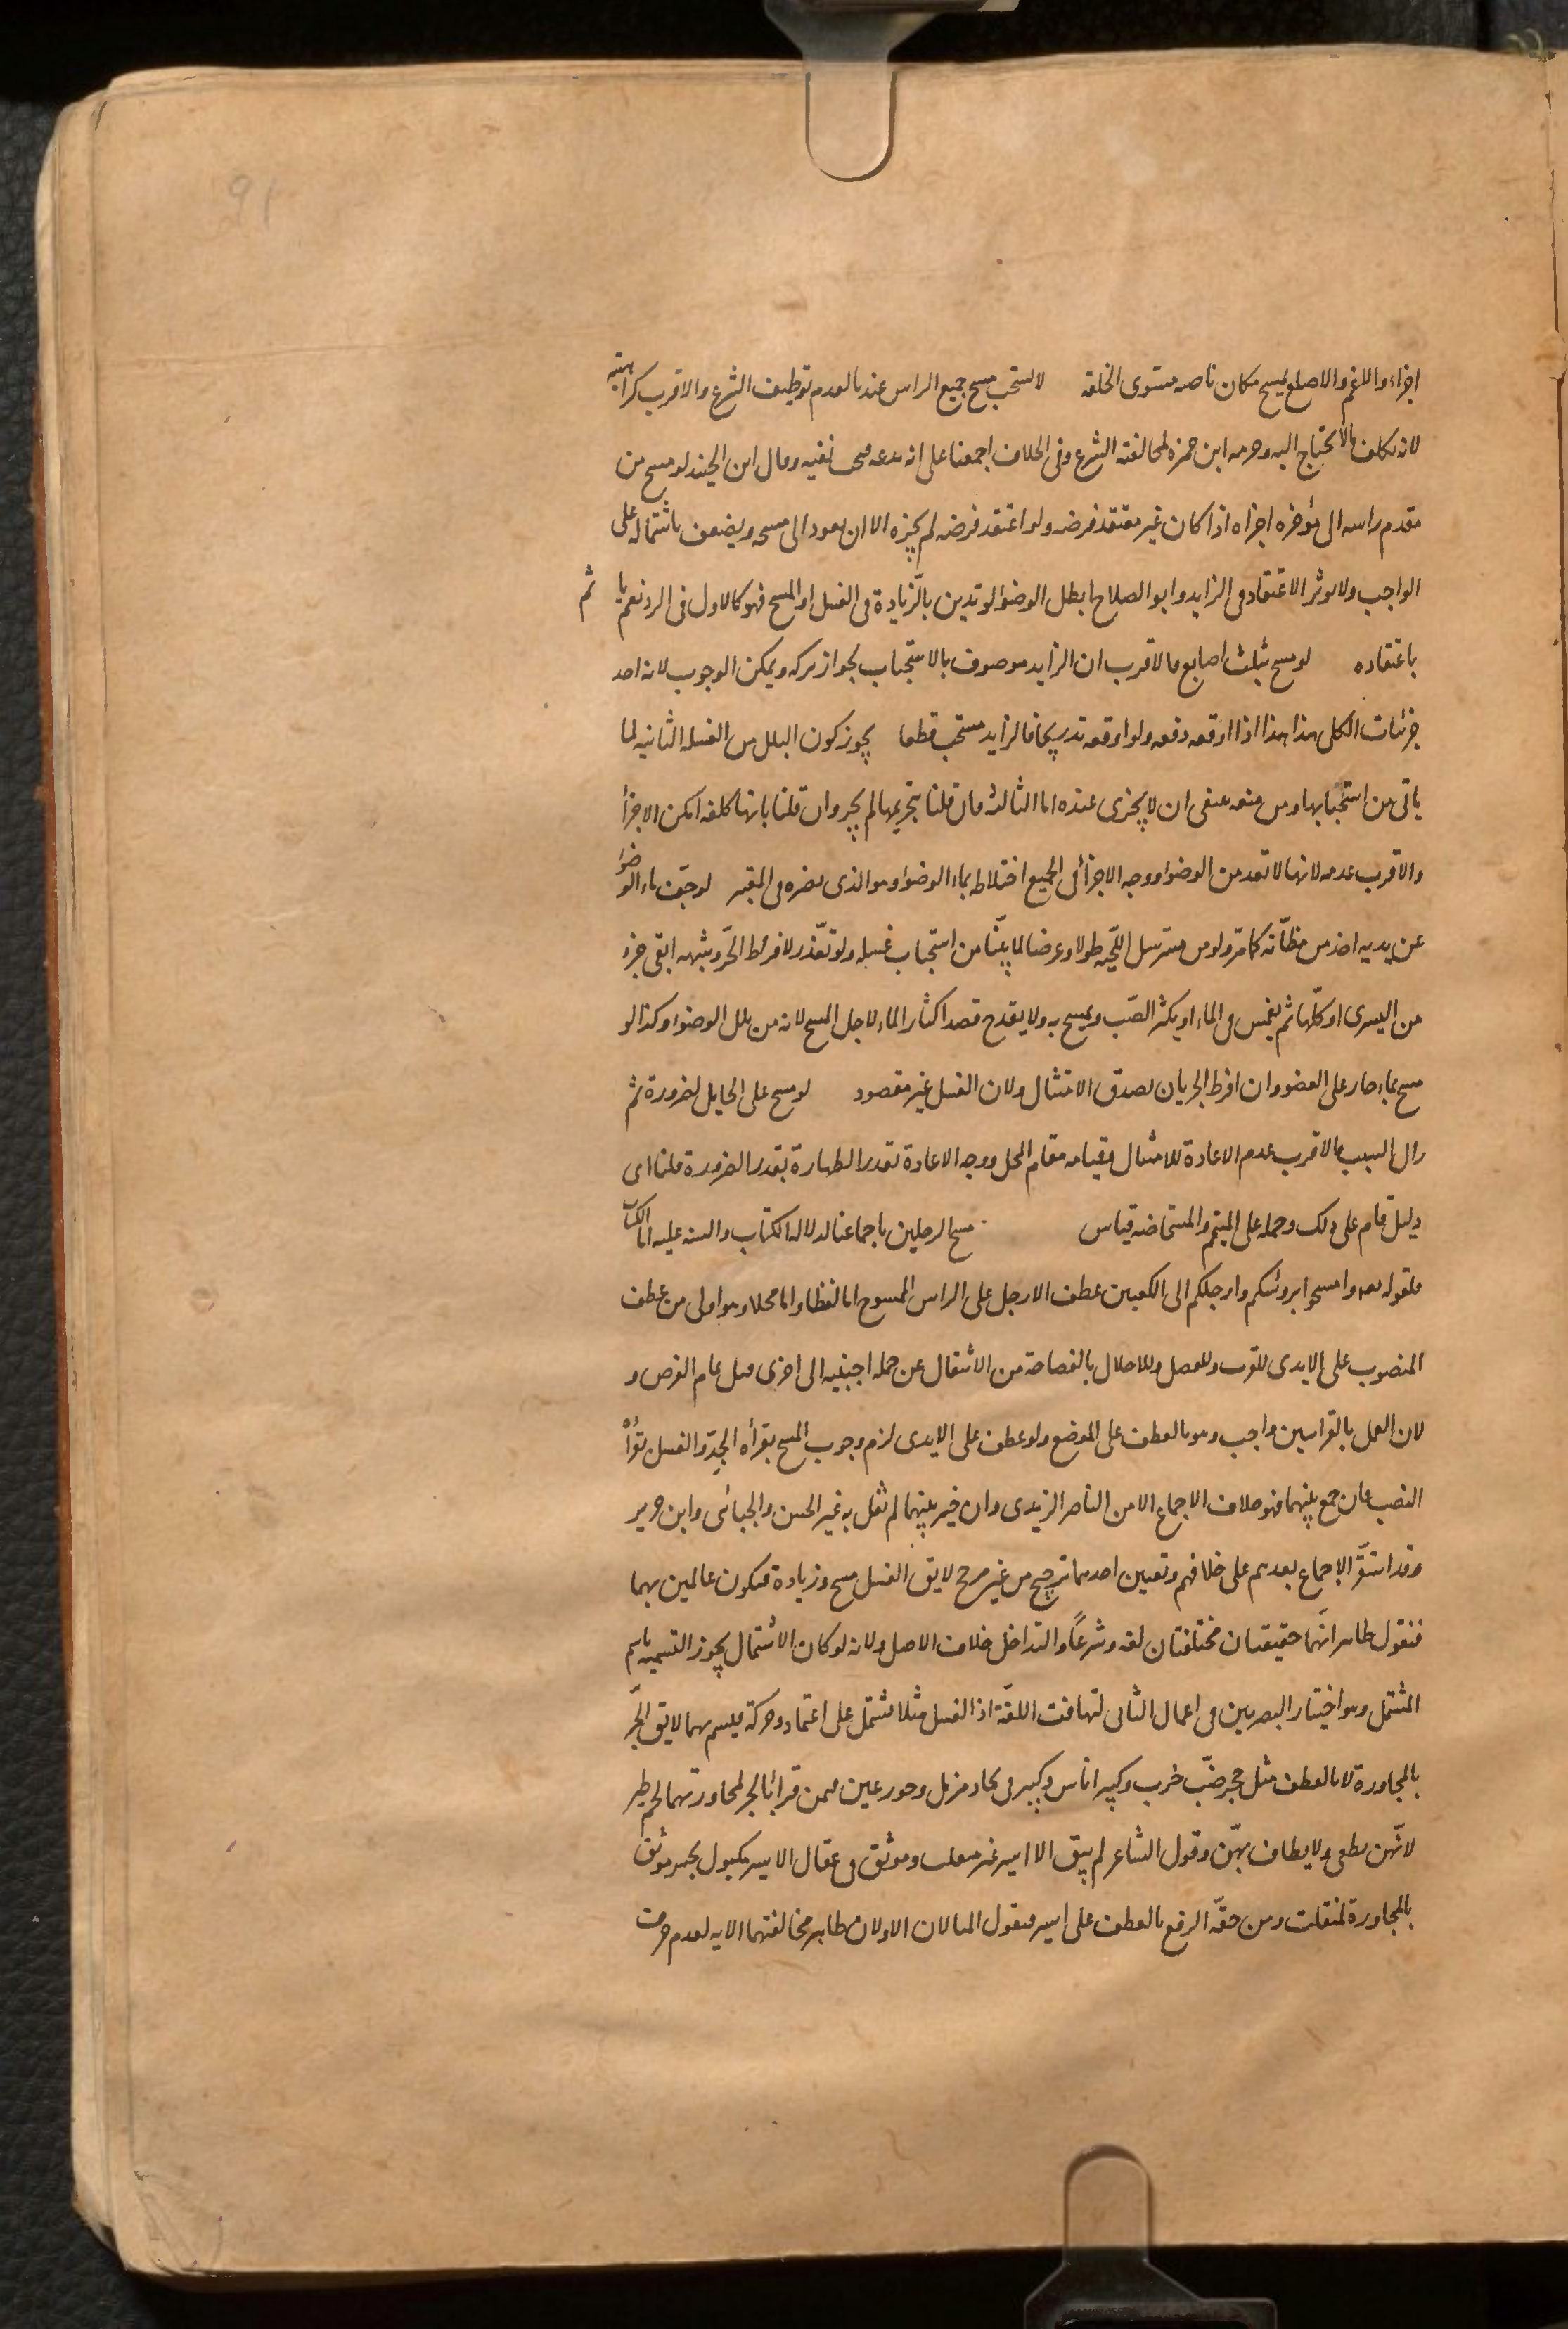 91
اجزاء والاغم والاصلع يمسح مكان ناصية مستوى الخلقة لا يستحب مسح جميع الراس عندنا لعدم توظيف الشرع والاقرب كراهيته
لانه تكلف مالا يحتاج اليه وحرمه ابن حمزه لمخالفته الشرع وفي الخلاف اجمعنا على انه بدعه فيجب نفيه وقال ابن الجنيد لو مسح من
مقدم راسه الى مؤخره اجزاه اذا كان غير معتقد فرضه ولو اعتقد فرضه لم يجزه الا ان يعود الى مسحه ويضعف باشتماله على
الواجب ولا يؤثر الاعتقاد في الزايد وابو الصلاح ابطل الوضوء لو تدين بالزيادة في الغسل او المسح فهو كالاول في الرد نعم يا ثم
باعتقاده لو مسح بثلث اصابع فالاقرب ان الزايد موصوف بالاستحباب لجواز تركه ويمكن الوجوب لانه احد
جزئيات الكلي هذا هذا اذا اوقعه دفعه ولو اوقعه تدريجا فالزايد مستحب قطعا يجوز كون البلل من الغسله الثانيه لما
ياتي من استحبابها ومن منعه ينبغى ان لا يجزى عنده اما الثالثه فان قلنا بتحريمها لم يجز وان قلنا بانها كلفه امكن الاجزأ
والاقرب عدمه لانها لا تعد من الوضوء ووجه الاجزأ في الجميع اختلاطه بماء الوضوء وهو الذى نصره في المعتبر لو جفّ ماء الوضوء
عن يديه اخذ من مظانّه كما مرّ ولو من مسترسل اللحيه طولا وعرضا لما بيّنا من استحباب غسله ولو تعذّر لافراط الحرّ وشبهه ابقى جزء
من اليسرى او كلّها ثم يغمس في الماء او يكثر الصّب ويمسح به ولا يقدح قصد اكثار الماء لاجل المسح لانه من بلل الوضوء وكذا لو
مسح بماء جار على العضو وان افرط الجريان لصدق الامتثال ولان الغسل غير مقصود لو مسح على الحايل لضرورة ثم
زال السبب فالاقرب عدم الاعادة للامتثال فقيامه مقام المحل ووجه الاعادة تقدر الطهارة بقدر الضرورة قلنا اى
دليل قام على ذلك وحمله على المتيمم والمستحاضه قياس مسح الرجلين باجماعنا لدلاله الكتاب والسنه عليه اما الكتاب
فلقوله تعه وامسحوا برؤسكم وارجلكم الى الكعبين عطف الارجل على الراس الممسوح اما لفظا واما محلا وهو اولى من عطف
المنصوب على الايدى للقرب وللفصل وللاخلال بالفصاحة من الانتقال عن جمله اجنبيه الى اخرى قبل تمام الغرض و
لان العمل بالقراتين واجب وهو بالعطف على الموضع ولو عطف على الايدى لزم وجوب المسح بقرأه الجرّ والغسل بقرأه
النصب فان جمع بينهما فهو خلاف الاجماع الا من الناصر الزيدى وان خير بينهما لم يقل به غير الحسن والجبائى وابن جرير
وقد استقرّ الاجماع بعدهم على خلافهم وتعيين احدهما ترجيح من غير مرجح لا يق الغسل مسح وزيادة فيكون عالمين بهما
فنقول ظاهر انّهما حقيقتان مختلفتان لغه وشرعاً والتداخل خلاف الاصل ولانه لو كان الاشتمال يجوز التسميه باسم
المشتمل وهو اختيار البصريين في اعمال الثانى لتهافت اللغّة اذ الغسل مثلا يشتمل على اعتماد وحركة فيسم بهما لا يق الجّر
بالمجاورة لا بالعطف مثل جحر ضبّ خرب وكبير اناس وكبير فى بجاد مزمل وحور عين فيمن قرأ بالجر لمجاورتهما لحم طير
لانّهن يطفن ولا يطاف بهّن وقول الشاعر لم يبق الا اسير غير منفلت وموثق في عقال الاسير مكبول بجر موثق
بالمجاورة لمنفلت ومن حقّه الرفع بالعطف على اسير فنقول المثالان الاولان ظاهر مخالفتهما الايه لعدم حرف